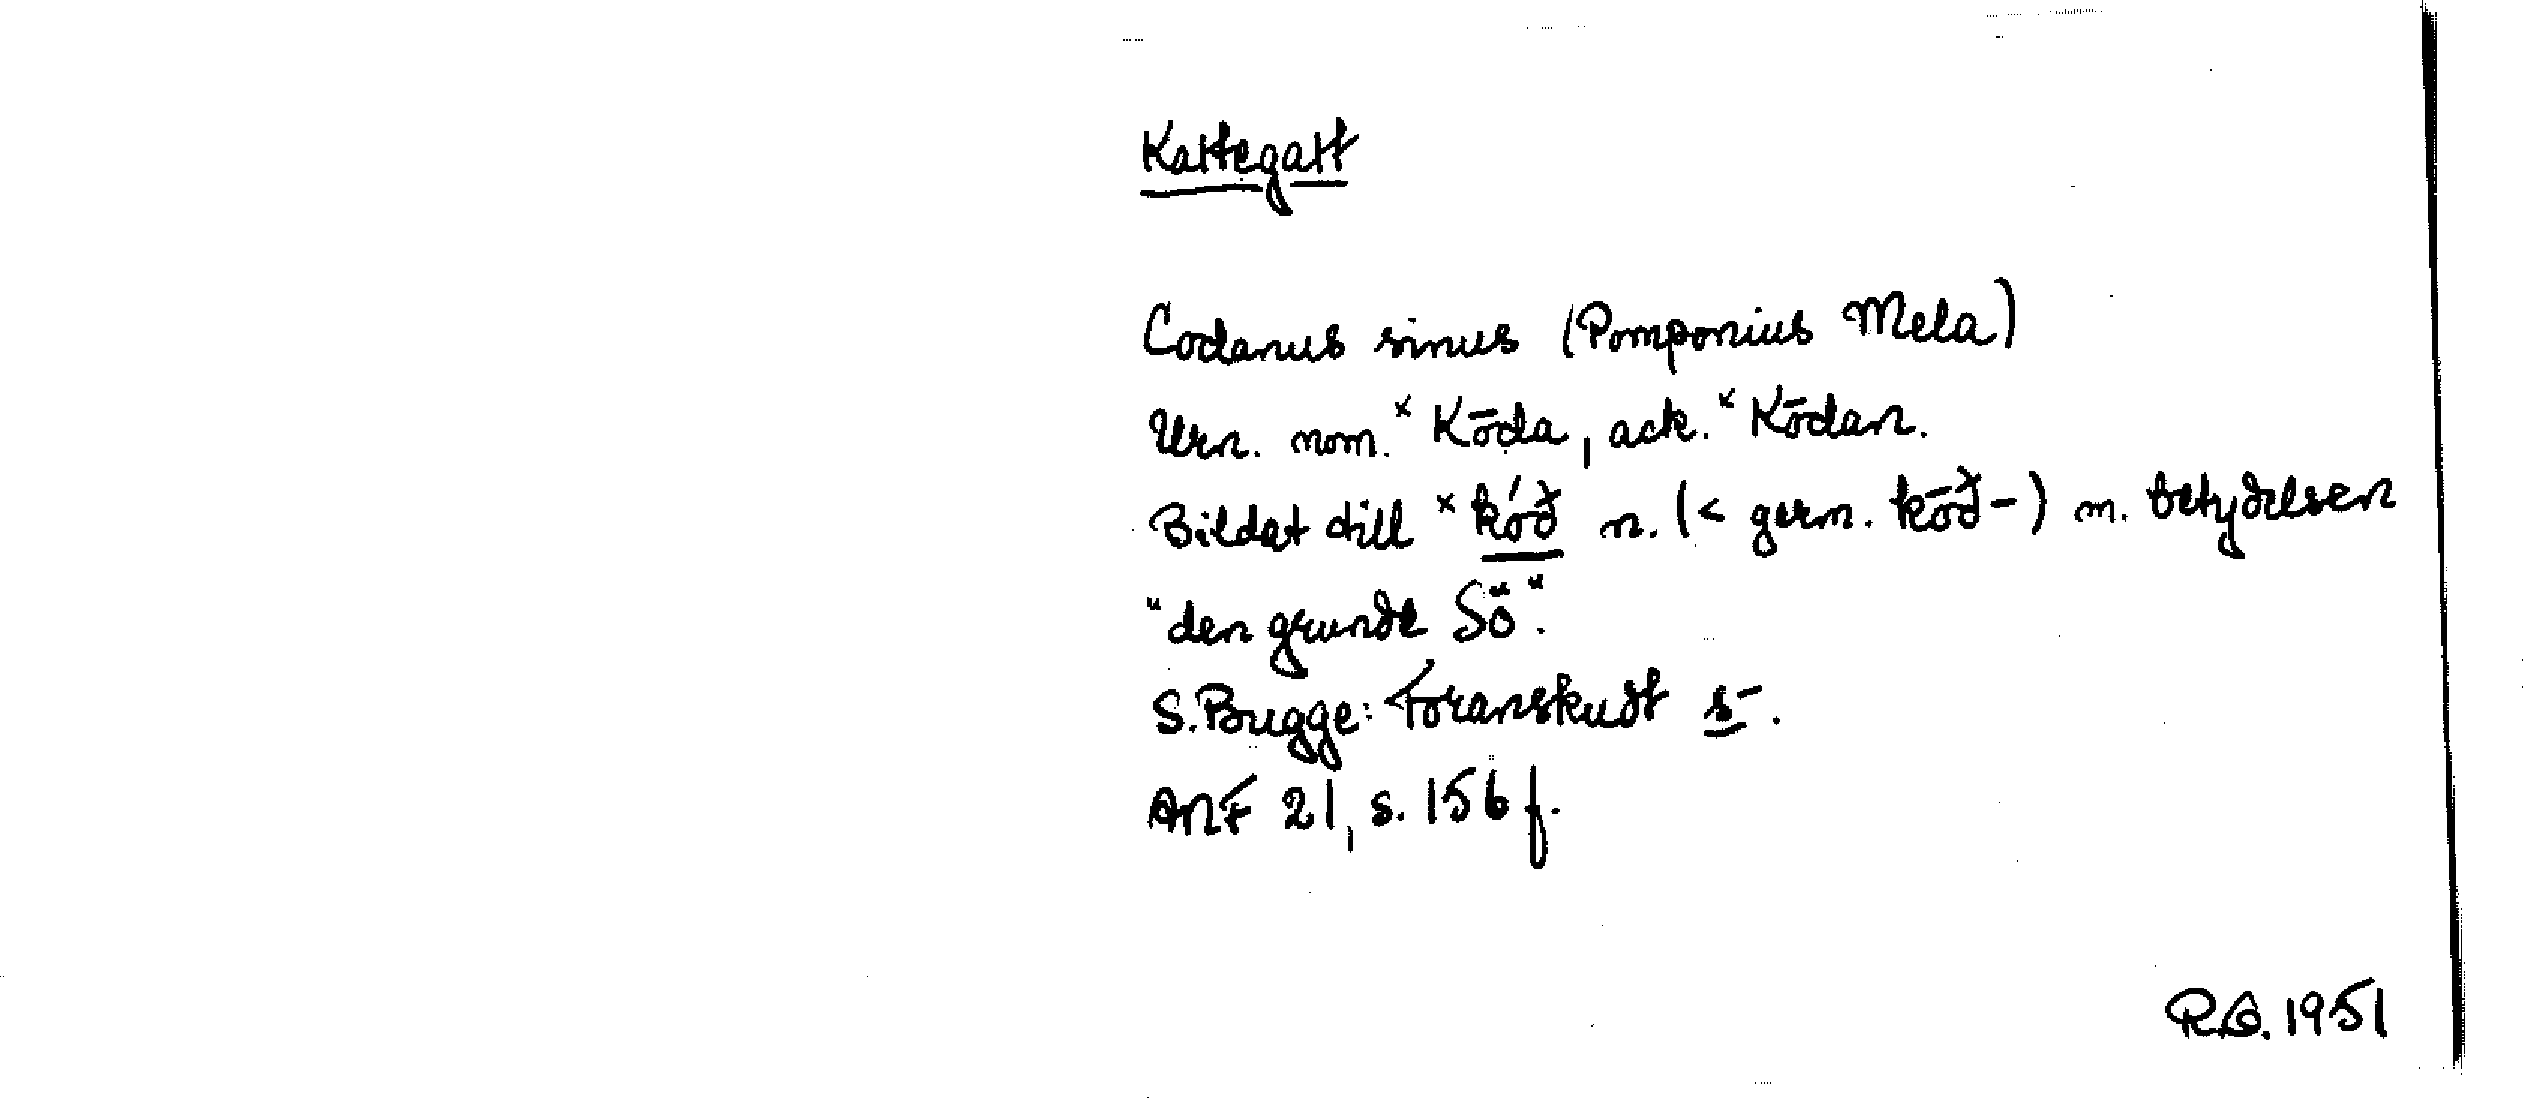 Kattegatt
Codanus sinus (Pomponius Mela)
Urn. nom. ˣKōda, ack. ˣKōdan.
Bildat till ˣkóð n. (< germ. kōð-) m. betydelsen
"den grunde Sö".
S. Bugge: Foranskudt s-.
ANF 21, s. 156 f.
R.B. 1951